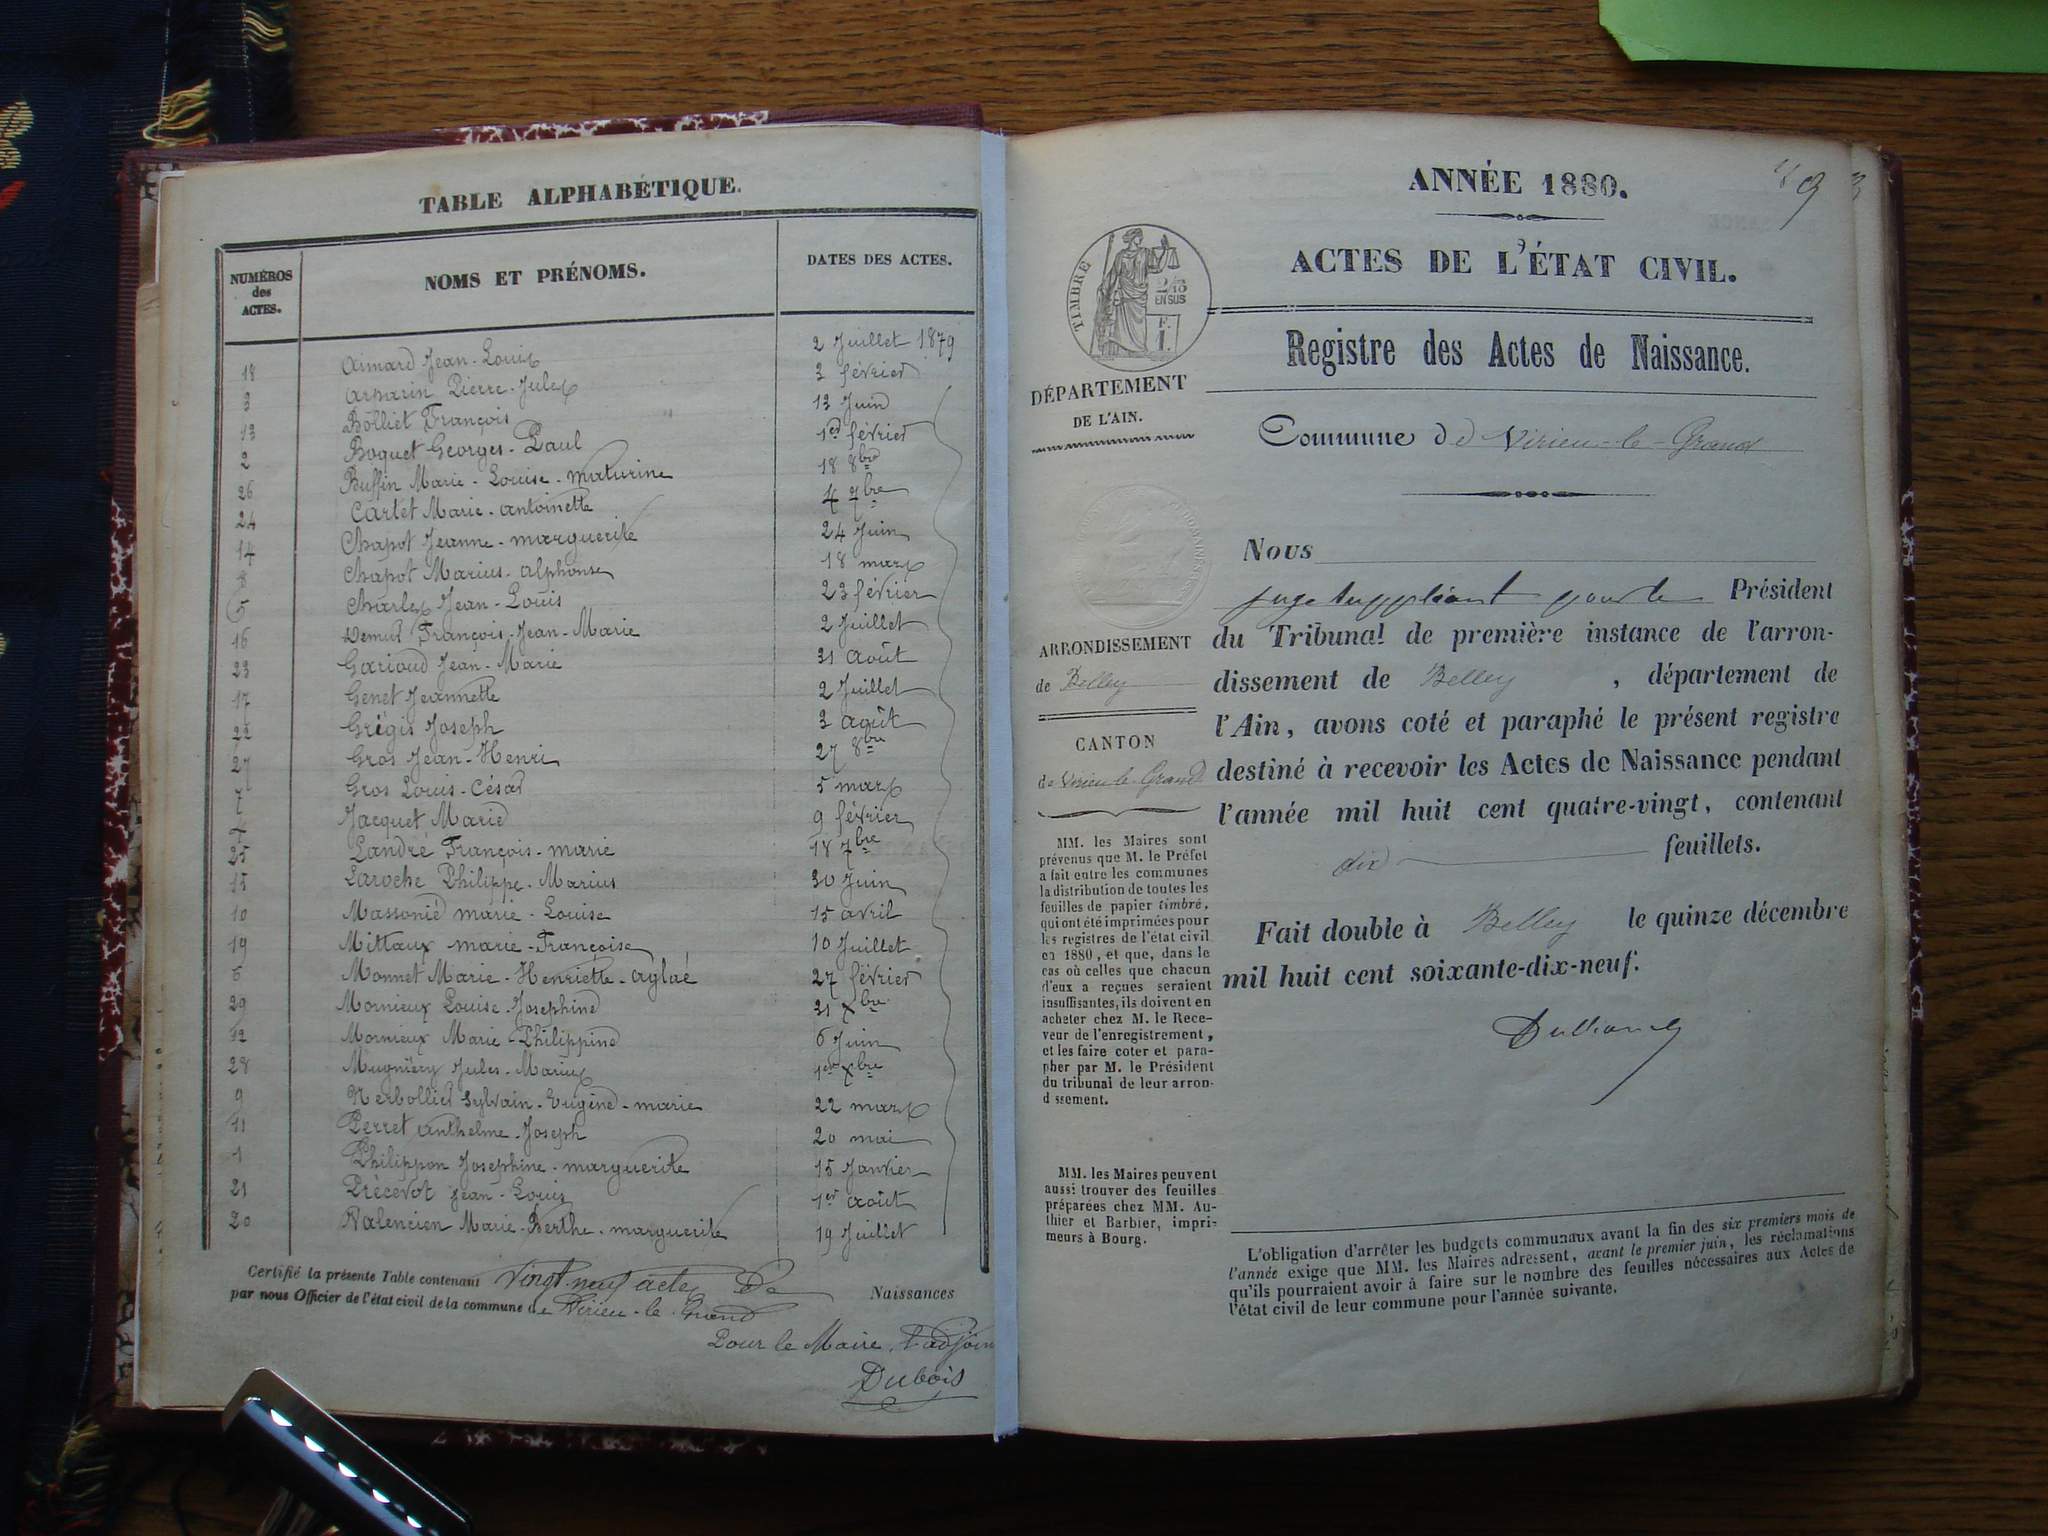 TABLE ALPHABÉTIQUE.
NUMÉROS des ACTES. NOMS ET PRÉNOMS. DATES DES ACTES.
18 Aimard Jean-Louis 2 Juillet 1879
3 Arparin Pierre-Jules 3 février
13 Bolliet François 13 Juin
2 Boquet Georges-Paul 1er février
26 Buffin Marie-Louise-maturine 18 8bre
24 Cartet Marie-antoinette 4 7bre
14 Chapot Jeanne-marguerite 24 Juin
8 Chapot Marius-alphonse 18 mars
5 Charles Jean-Louis 23 février
16 François-Jean-Marie 2 Juillet
23 Garioud Jean-Marie 31 Août
17 Genet Jeannette 2 Juillet
22 Grégis Joseph 3 août
27 Gros Jean-Henri 27 8bre
7 Gros Louis-César 5 mars
Jacquet Marie 9 février
25 Landré François-marie 18 7bre
15 Laroche Philippe-Marius 30 Juin
10 Massonié marie-Louise 15 avril
19 Mittaux marie-Françoise 10 Juillet
6 Monnet Marie-Henriette-aglaé 27 février
29 Mornieux Louise-Joséphine 31 Xbre
12 Mornieux Marie-Philippine 6 Juin
28 Mugniery Jules-Marius 1er Xbre
9 Nerbollier Sylvain-Eugène-marie 22 mars
11 Perret anthelme-Joseph 20 mai
1 Philippon Joséphine-marguerite 15 Janvier
21 Précevot Jean-Louis 1er août
20 Valencien Marie-Berthe-marguerite 19 Juillet
Certifié la présente Table contenant Vingt-neuf actes De Naissances
par nous Officier de l'état civil de la commune de Virieu-le-Grand
Pour le Maire, l'adjoin
Dubois
ANNÉE 1880.
ACTES DE L'ÉTAT CIVIL.
TIMBRE
2/10
EN SUS
F.
1.
Registre des Actes de Naissance.
DÉPARTEMENT
DE L'AIN.
Commune de Virieu-le-Grand
ARRONDISSEMENT
de Belley
CANTON
de Virieu-le-Grand
MM. les Maires sont
prévenus que M. le Préfet
a fait entre les communes
la distribution de toutes les
feuilles de papier timbré,
qui ont été imprimées pour
les registres de l'état civil
en 1880, et que, dans le
cas où celles que chacun
d'eux a reçues seraient
insuffisantes, ils doivent en
acheter chez M. le Rece-
veur de l'enregistrement,
et les faire coter et para-
pher par M. le Président
du tribunal de leur arron-
dissement.
MM. les Maires peuvent
aussi trouver des feuilles
préparées chez MM. Au-
thier et Barbier, impri-
meurs à Bourg.
Nous
juge suppléant pour le Président
du Tribunal de première instance de l'arron-
dissement de Belley, département de
l'Ain, avons coté et paraphé le présent registre
destiné à recevoir les Actes de Naissance pendant
l'année mil huit cent quatre-vingt, contenant
dix feuillets.
Fait double à Belley le quinze décembre
mil huit cent soixante-dix-neuf.
L'obligation d'arrêter les budgets communaux avant la fin des six premiers mois de
l'année exige que MM. les Maires adressent, avant le premier juin, les réclamations
qu'ils pourraient avoir à faire sur le nombre des feuilles nécessaires aux Actes de
l'état civil de leur commune pour l'année suivante.